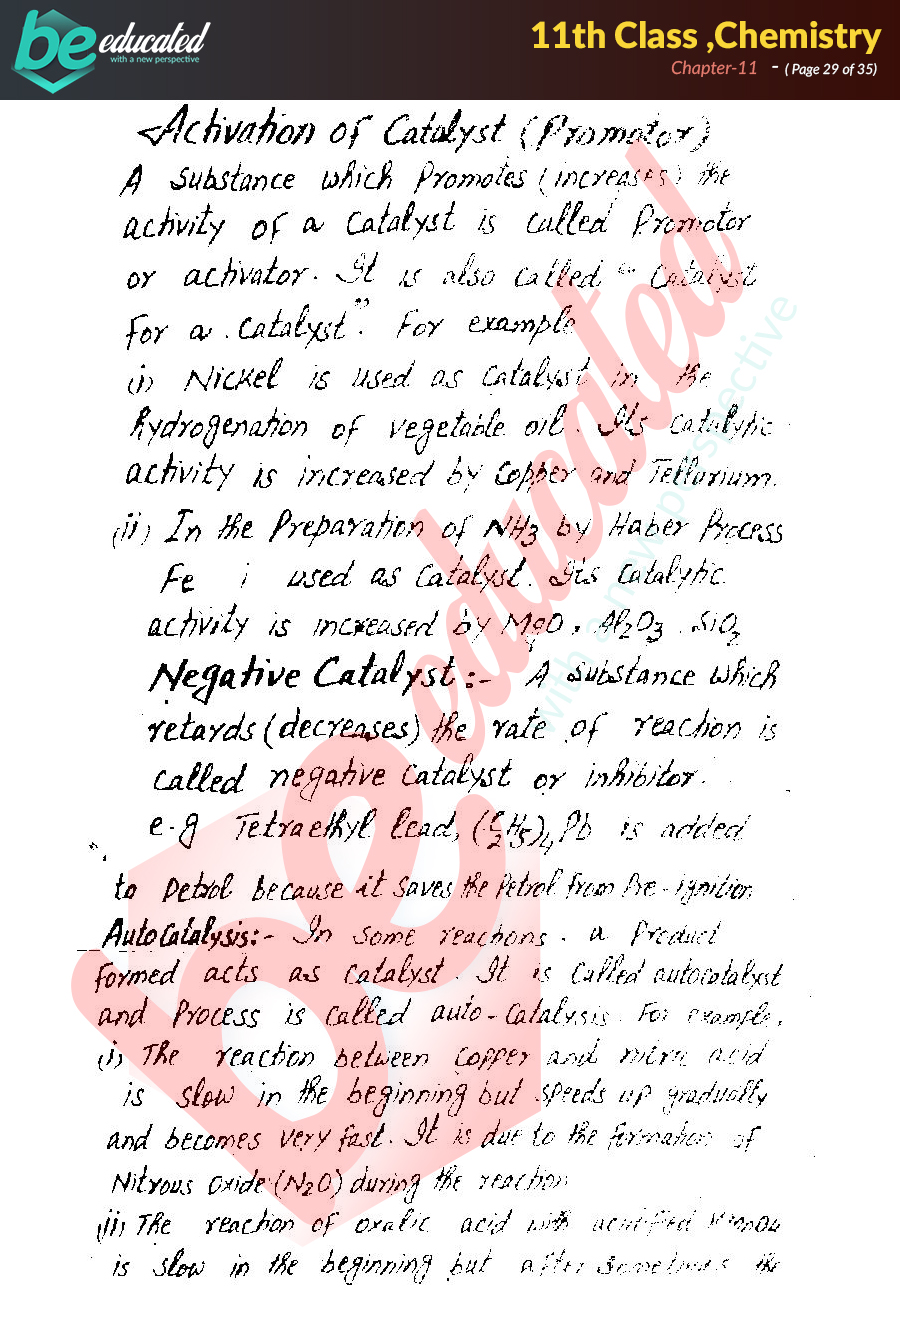 be educated
with a new perspective
11th Class ,Chemistry
Chapter-11 - ( Page 29 of 35)
Activation of Catalyst (Promotor)
A substance which Promotes (increases) the
activity of a Catalyst is called Promotor
or activator. It is also called "Catalyst
for a Catalyst". For example
(i) Nickel is used as Catalyst in the
hydrogenation of vegetable oil. Its Catalytic
activity is increased by Copper and Tellurium.
(ii) In the Preparation of NH3 by Haber Process
Fe i used as Catalyst. Its Catalytic
activity is increased by MgO, Al2O3, SiO2
Negative Catalyst:- A substance which
retards (decreases) the rate of reaction is
called negative Catalyst or inhibitor.
e.g Tetraethyl lead, (C2H5)4Pb is added
to Petrol because it saves the Petrol from Pre-ignition
AutoCatalysis:- In some reactions, a Product
Formed acts as Catalyst. It is called autocatalyst
and Process is called auto-Catalysis. For example,
(i) The reaction between Copper and nitric acid
is slow in the beginning but speeds up gradually
and becomes very fast. It is due to the formation of
Nitrous oxide (N2O) during the reaction
(ii) The reaction of oxalic acid with acidified KMnO4
is slow in the beginning but after sometimes the
be educated
with a new perspective